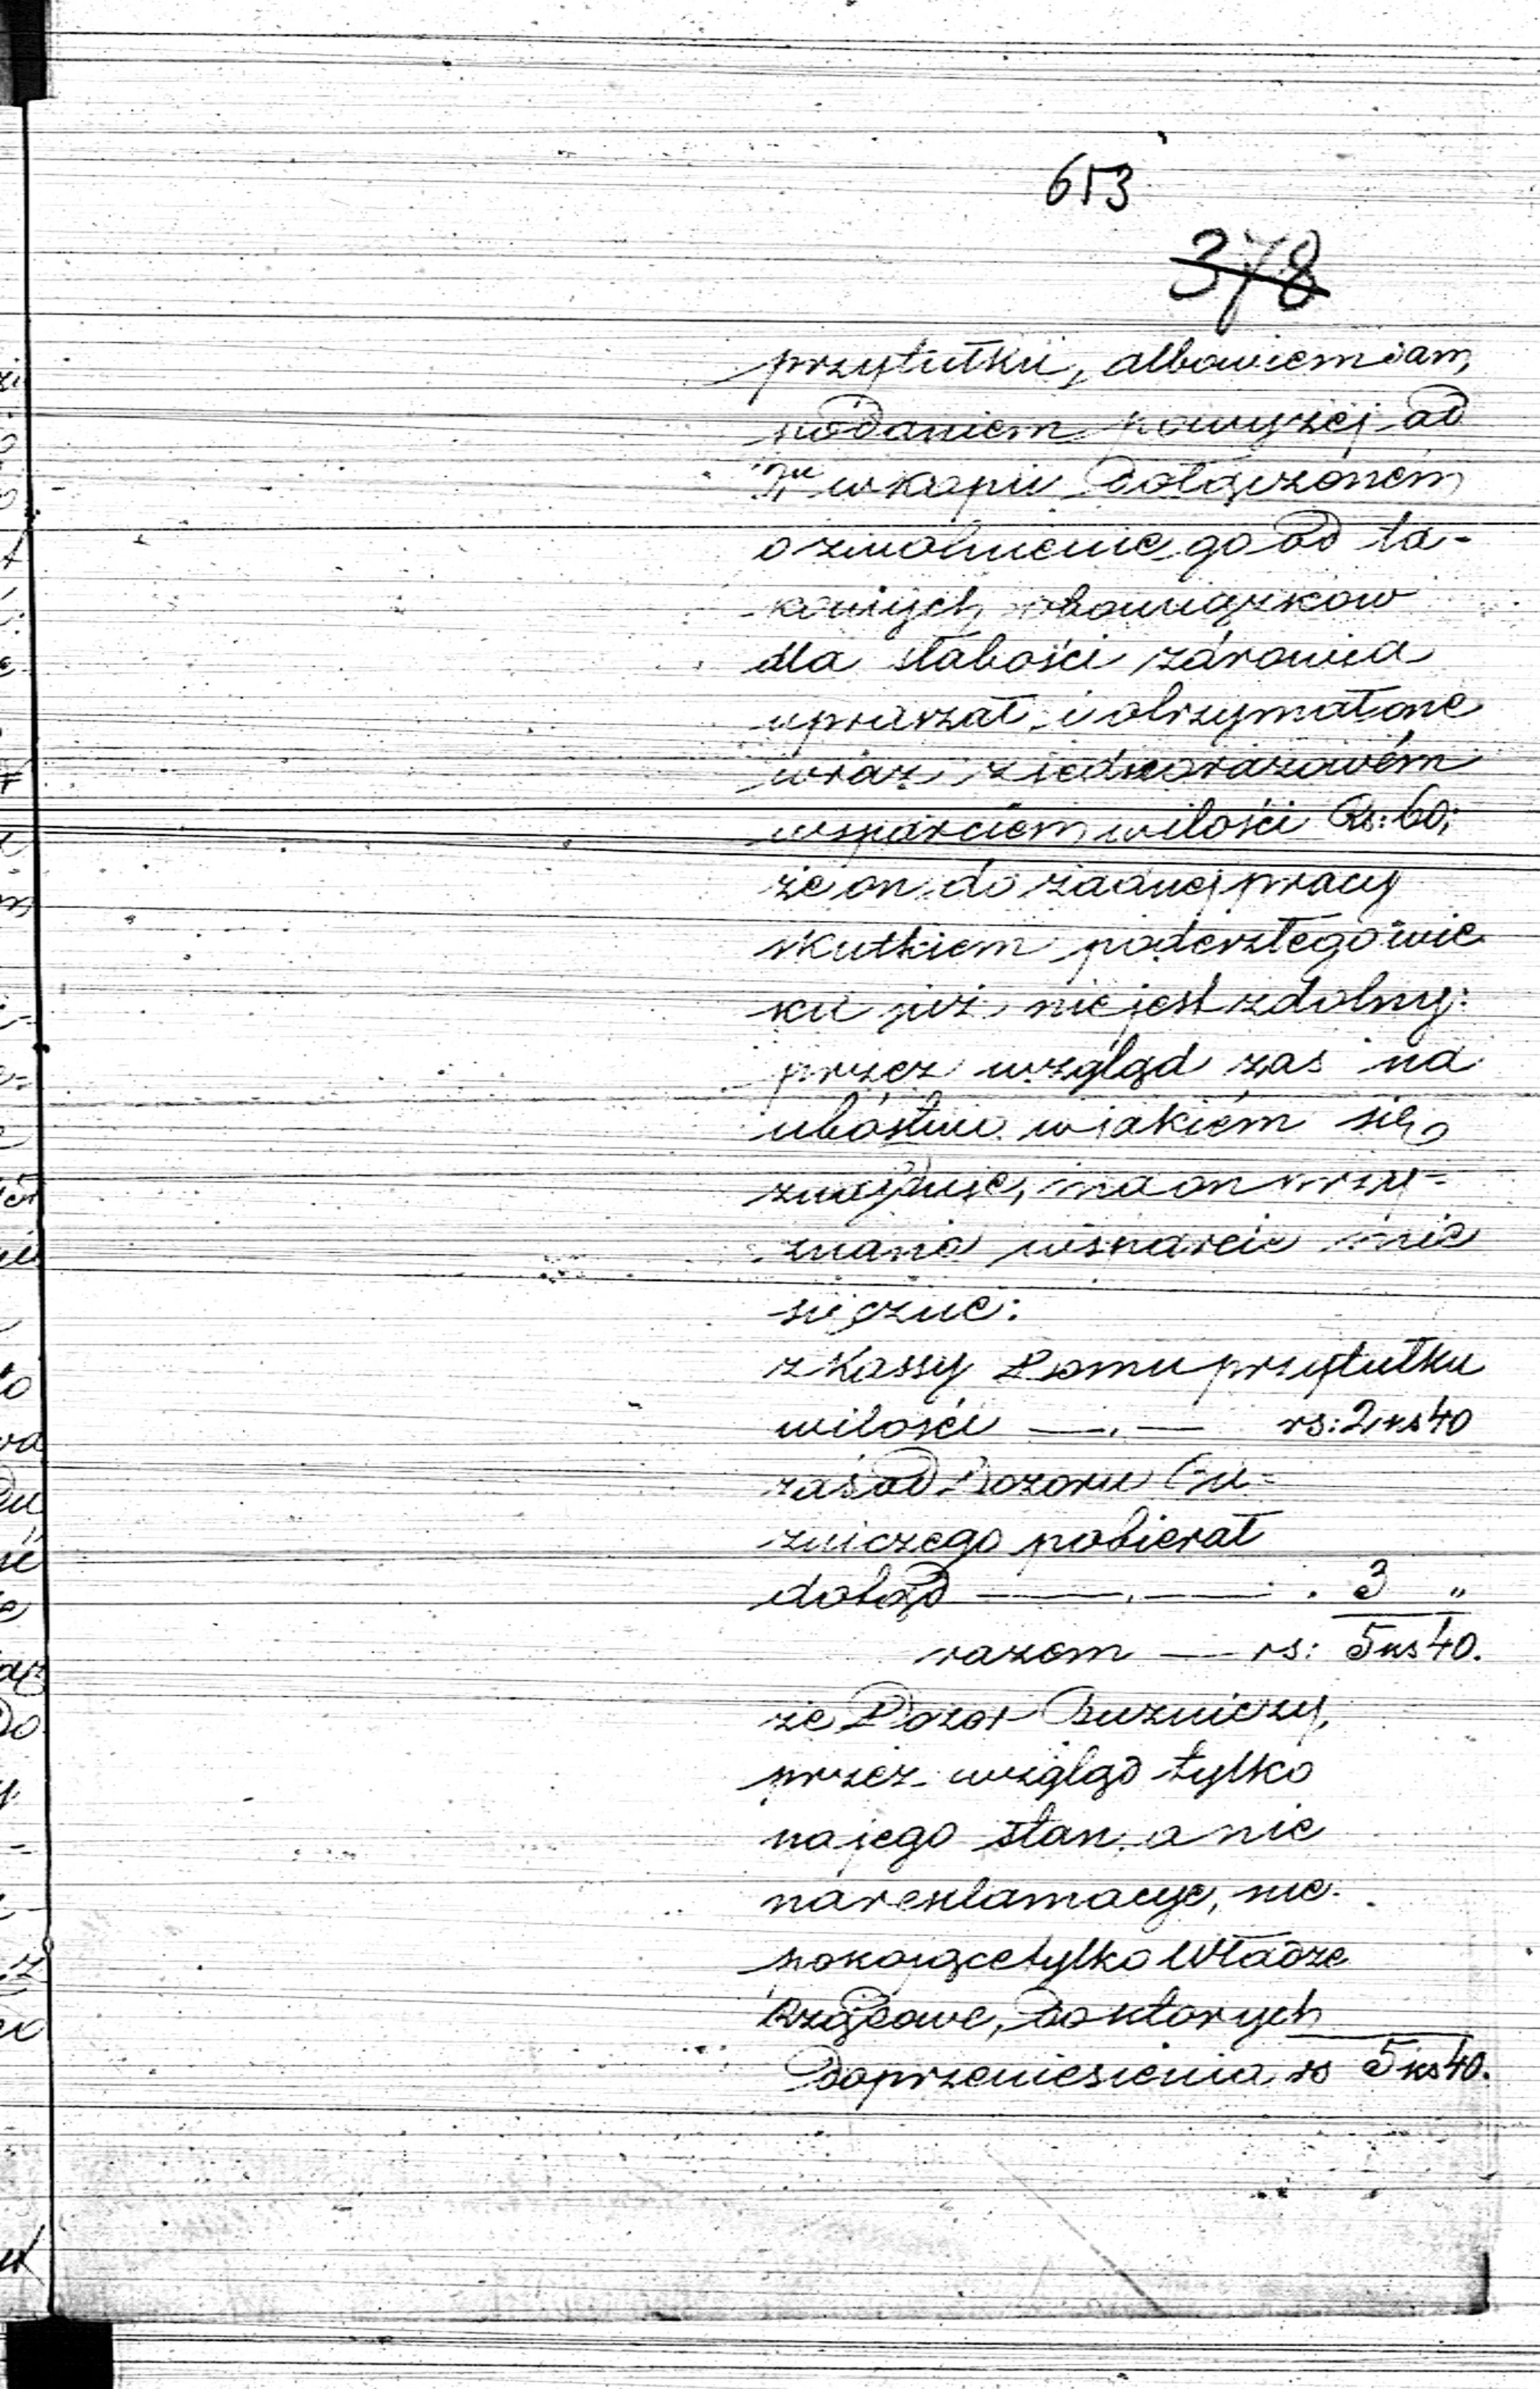 653
378
przytułku, albowiem sam,
podaniem powyżej ad
2m w kopii dołączonem
o zwolnienie go od ta-
kowych obowiązkow
dla słabości zdrowia
upraszał i otrzymał one
wraz z iednorazowém
wsparciem w ilości Rs: 60;
że on do żadnej pracy
skutkiem podeszłego wie
ku już nie jest zdolny:
przez wzgląd zas na
ubóstwo w jakiém się
znajduje, ma on przy-
znane wsparcie mie
sięczne:
z Kassy Domu przytułku
w ilości —.— rs: 2 ks 40
zaś od Dozoru Bu-
zniczego pobierał
dotąd —.— . 3 "
razem — rs: 5 ks 40.
że Dozor Buzniczy,
przez wzgląd tylko
na jego stan, a nie
na reklamacye, nie-
pokojące tylko Władze
Rządowe, do ktorych
do przeniesienia rs 5 ks 40.